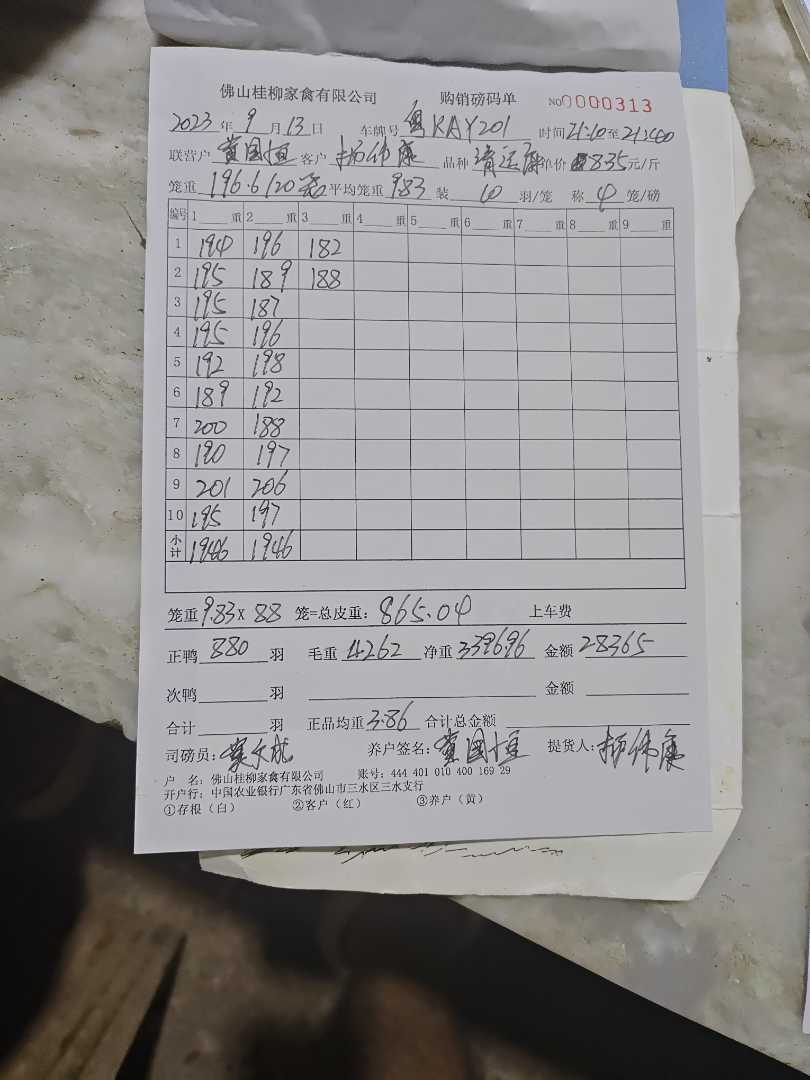 佛山桂柳家禽有限公司 购销磅码单 NO 0000313
2023 年 9 月 13 日 车牌号 粤KAY201 时间 21:10 至 21:40
联营户 黄国恒 客户 杨伟康 品种 清远麻 单价 8.35 元/斤
笼重 196.6/20笼 平均笼重 9.83 装 10 羽/笼 称 4 笼/磅
编号 1 重 2 重 3 重 4 重 5 重 6 重 7 重 8 重 9 重
1 194 196 182
2 195 189 188
3 195 187
4 195 196
5 192 198
6 189 192
7 200 188
8 190 197
9 201 206
10 195 197
小计 1946 1946
笼重 9.83 X 88 笼=总皮重: 865.04 上车费
正鸭 880 羽 毛重 4262 净重 3396.96 金额 28365
次鸭 羽 金额
合计 羽 正品均重 3.86 合计总金额
司磅员: 养户签名: 黄国恒 提货人: 杨伟康
户 名: 佛山桂柳家禽有限公司 账号: 444 401 010 400 169 29
开户行: 中国农业银行广东省佛山市三水区三水支行
①存根(白) ②客户(红) ③养户(黄)